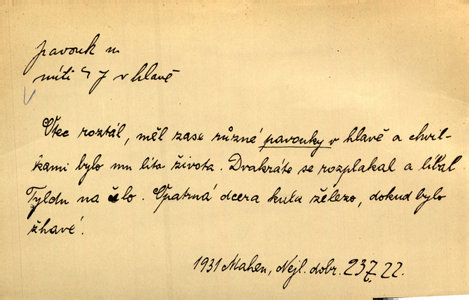 pavouk m
míti ~ v hlavě
Otec roztál, měl zase různé pavouky v hlavě a chvil-
kami bylo mu líto života. Dvakráte se rozplakal a líbal
Tyldu na čelo. Opatrná dcera kula železo, dokud bylo
žhavé.
1931 Mahen, Nejl. dobr. 237, 22.